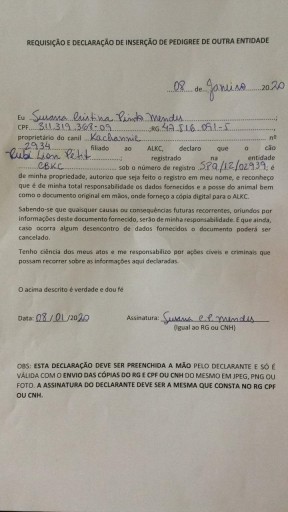 REQUISIÇÃO E DECLARAÇÃO DE INSERÇÃO DE PEDIGREE DE OUTRA ENTIDADE
08 de Janeiro 2020
Eu Susana Cristina Pinto Mendes
CPF 311.319.368-09 RG 42.516.091-5
proprietário do canil Kachannie nº
2934 filiado ao ALKC, declaro que o cão
Rubi Lion Petit registrado na entidade
CBKC sob o número de registro SPA/12/02939, é
de minha propriedade, autorizo que seja feito o registro em meu nome, e reconheço
que é de minha total responsabilidade os dados fornecidos e a posse do animal bem
como o documento original em mãos, onde forneço a cópia digital para o ALKC.
Sabendo-se que quaisquer causas ou consequências futuras recorrentes, oriundos por
informações deste documento fornecido, serão de minha responsabilidade. E que ainda,
caso ocorra algum desencontro de dados fornecidos o documento poderá ser
cancelado.
Tenho ciência dos meus atos e me responsabilizo por ações civeis e criminais que
possam recorrer sobre as informações aqui declaradas.
O acima descrito é verdade e dou fé
Data: 08/01/2020 Assinatura: Susana C.P. Mendes
(Igual ao RG ou CNH)
OBS: ESTA DECLARAÇÃO DEVE SER PREENCHIDA A MÃO PELO DECLARANTE E SÓ É
VÁLIDA COM O ENVIO DAS CÓPIAS DO RG E CPF OU CNH DO MESMO EM JPEG, PNG OU
FOTO. A ASSINATURA DO DECLARANTE DEVE SER A MESMA QUE CONSTA NO RG CPF
OU CNH.